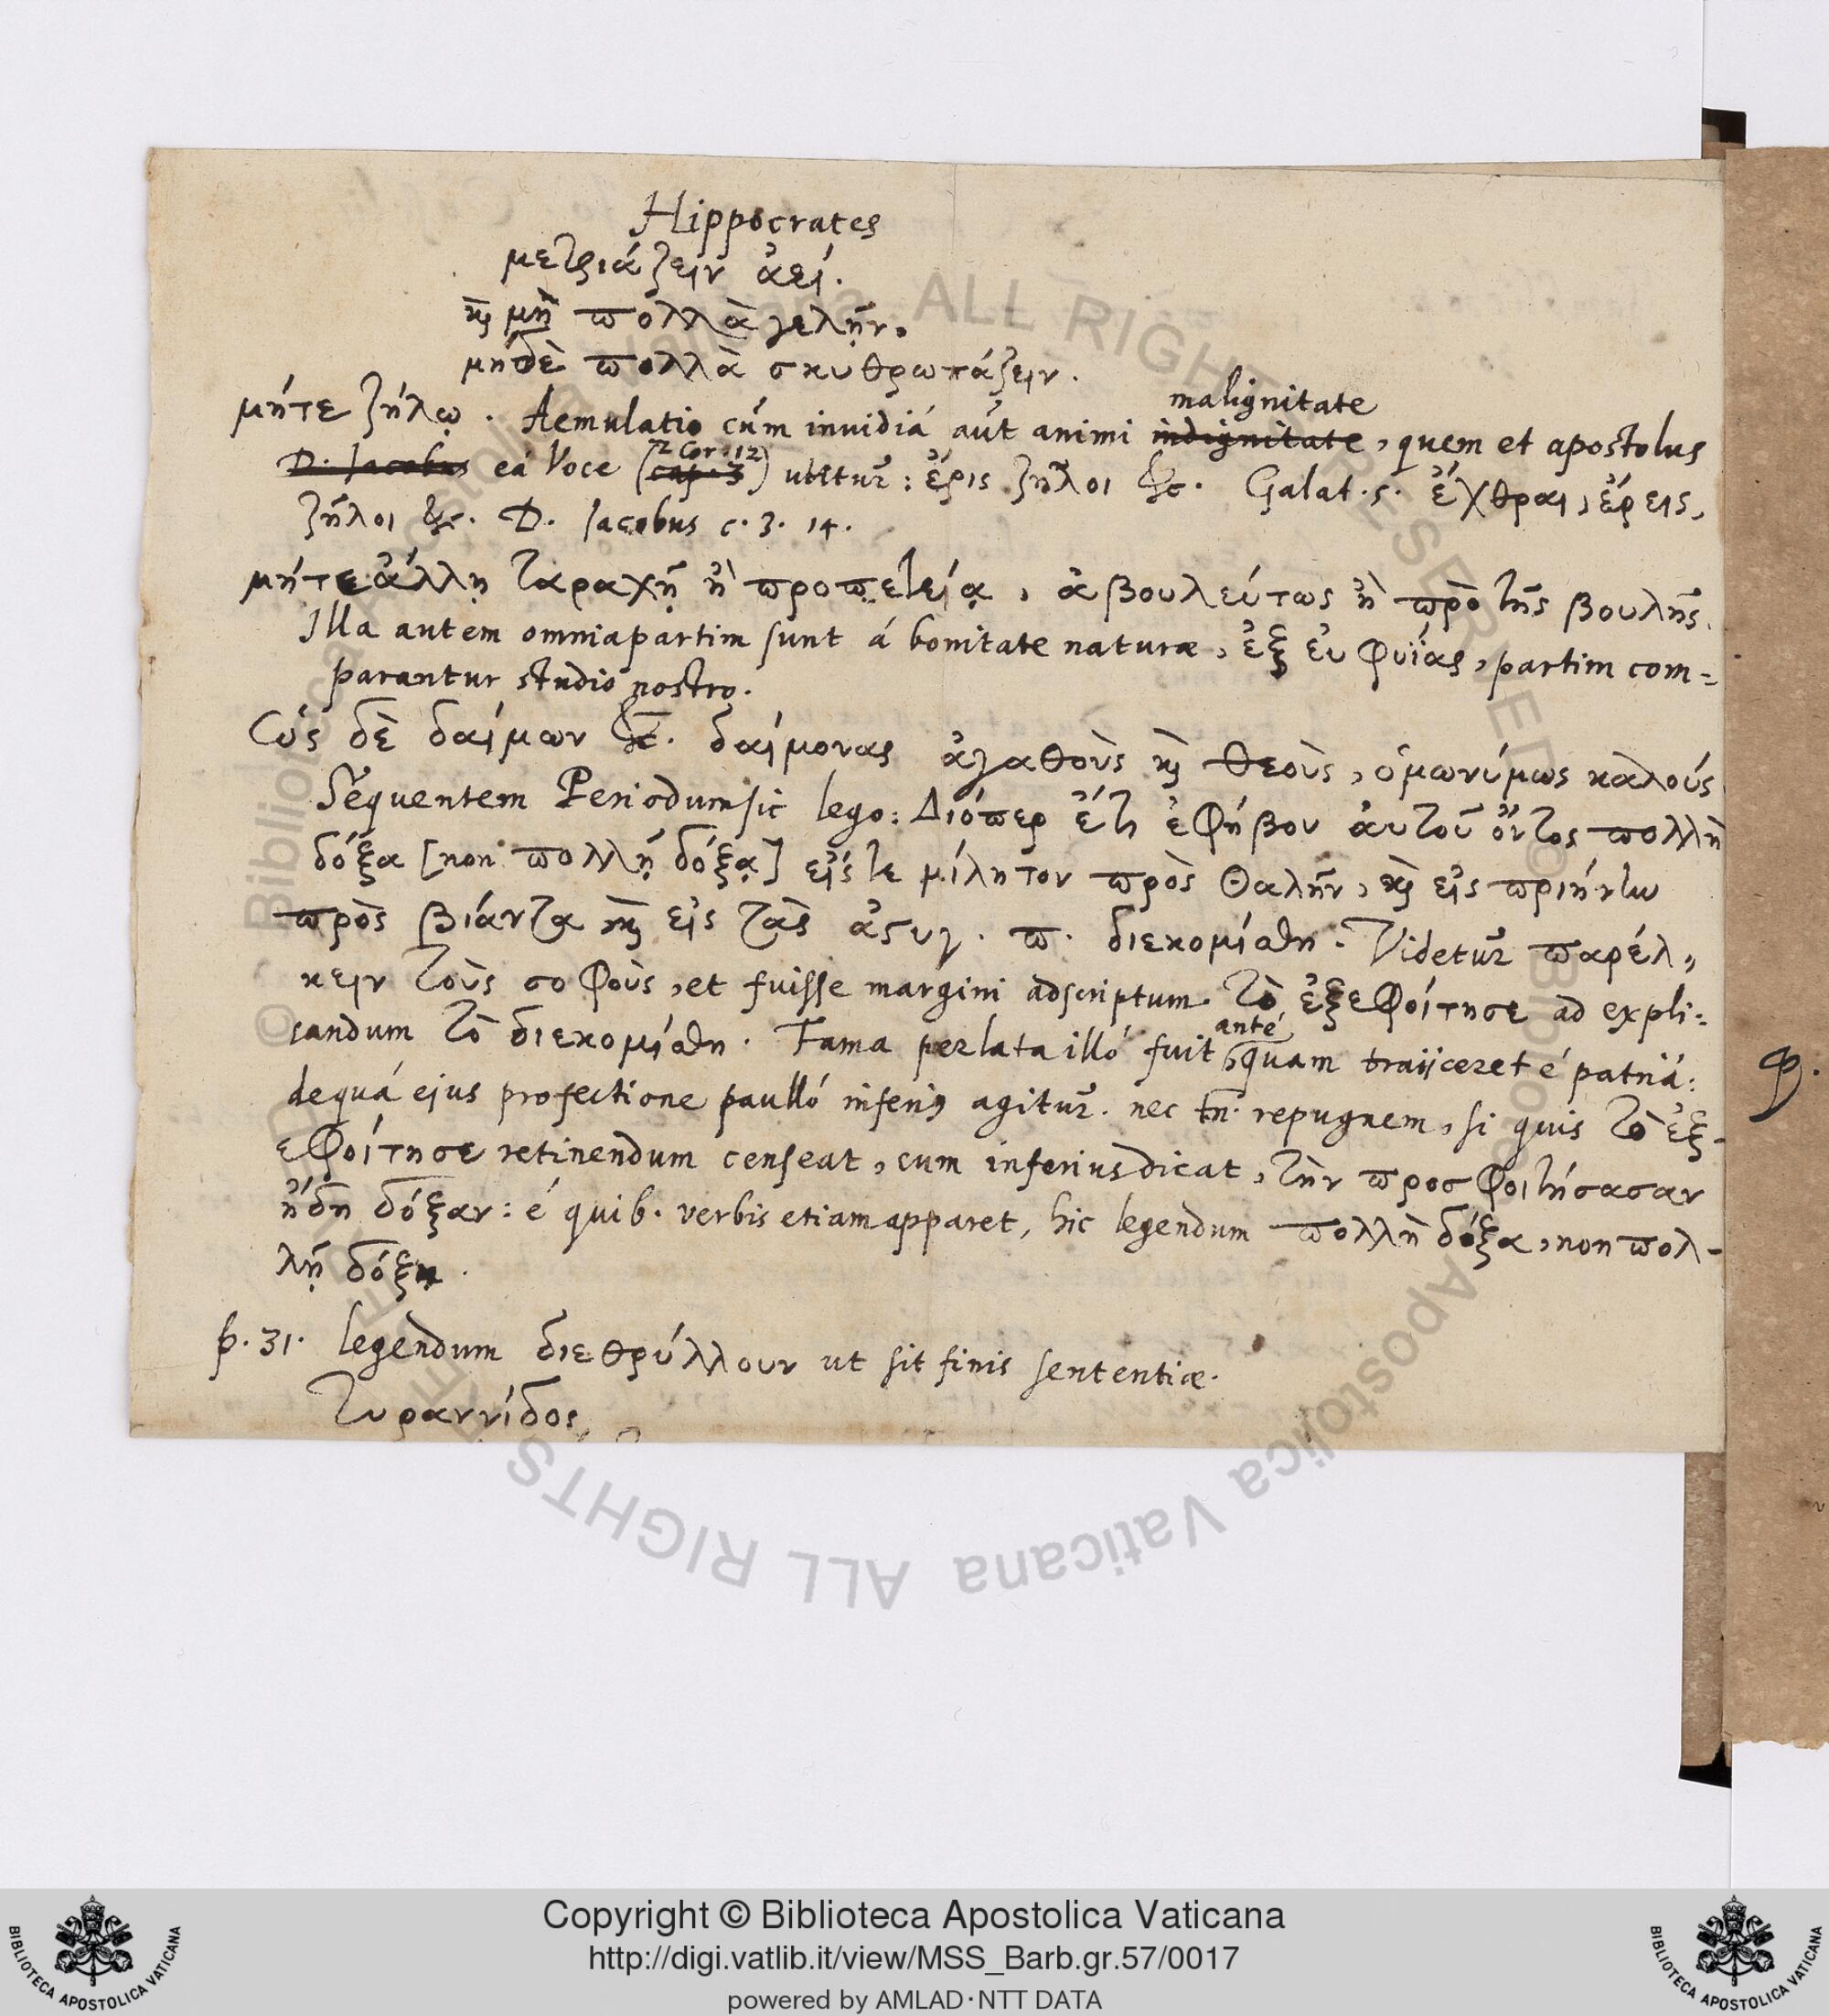 Hippocrates
μετριάζειν ἀεί.
καὶ μὴ πολλὰ γελῆν.
μηδὲ πολλὰ σκυθρωπάζειν.
malignitate
μήτε ζήλῳ. Aemulatio cúm invidiá aút animi indignitate, quem et apostolus
2 Cor. 12
D. Jacobus eá Voce (cap. 3) utitur: ἔρις ζῆλοι &c. Galat. 5. ἔχθραι, ἔρεις,
ζῆλοι &c. D. Jacobus c. 3. 14.
μήτε ἄλλῃ ταραχῇ ἢ προπετείᾳ, ἀβουλεύτως ἢ πρὸ τῆς βουλῆς.
Illa autem omnia partim sunt á bonitate naturæ, ἐξ εὐφυΐας, partim com=
parantur studio nostro.
ὡς δὲ δαίμων &c. δαίμονας ἀγαθοὺς καὶ θεοὺς, ὁμωνύμως καλούς
Séquentem Periodum sic lego: Διόπερ ἔτι ἐφήβου αὐτοῦ ὄντος πολλὴ
δόξα [non πολλῇ δόξᾳ] εἴς τε μίλητον πρὸς Θαλῆν, καὶ εἰς πριήνην
πρὸς βίαντα καὶ εἰς τὰς ἀστυγ. π. διεκομίσθη. Videtur παρέλ„
κειν τοὺς σοφοὺς, et fuisse margini adscriptum. τὸ ἐξεφοίτησε ad expli=
anté
candum τὸ διεκομίσθη. Fama perlata illó fuit, quam traijceret é patriá:
de quá ejus profectione paulló inferius agitur. nec tn. repugnem, si quis τὸ ἐξ-
εφοίτησε retinendum censeat, cum inferius dicat, τὴν προσφοιτήσασαν
ἤδη δόξαν: é quib. verbis etiam apparet, hic legendum πολλὴ δόξα, non πολ-
λῇ δόξῃ.
p. 31. legendum διεθρύλλουν ut sit finis sententiæ.
τυραννίδος
φ.
© Biblioteca Apostolica Vaticana ALL RIGHTS RESERVED
Copyright © Biblioteca Apostolica Vaticana
http://digi.vatlib.it/view/MSS_Barb.gr.57/0017
powered by AMLAD·NTT DATA
BIBLIOTECA APOSTOLICA VATICANA
BIBLIOTECA APOSTOLICA VATICANA